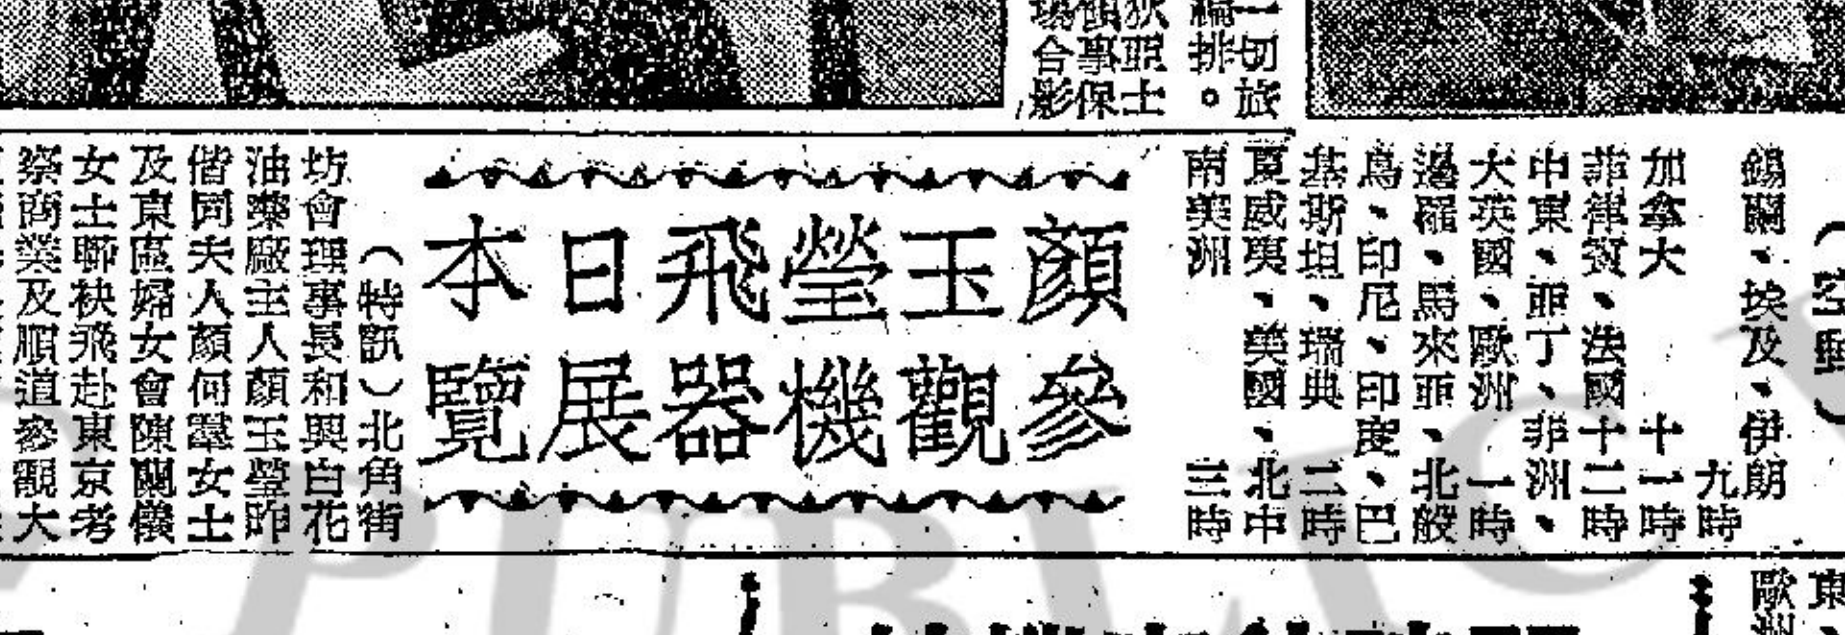 一切旅
編排。
狄亞士
領事保
場合影
錫蘭、埃及、伊朗
九時
加拿大 十一時
菲律賓、法國 十二時
中東、亞丁、非洲、
大英國、歐洲 一時
邊羅、馬來亞、北般
鳥、印尼、印度、巴
基斯坦、瑞典 二時
夏威夷、美國、北中
南美洲 三時
顏玉瑩飛日本
參觀機器展覽
(特訊)北角街
坊會理事長和興白花
油藥廠主人顏玉瑩昨
偕同夫人顏何羣女士
及東區婦女會陳蘭儀
女士聯袂飛赴東京考
察商業及順道參觀大
東
歐洲
PUBLIC